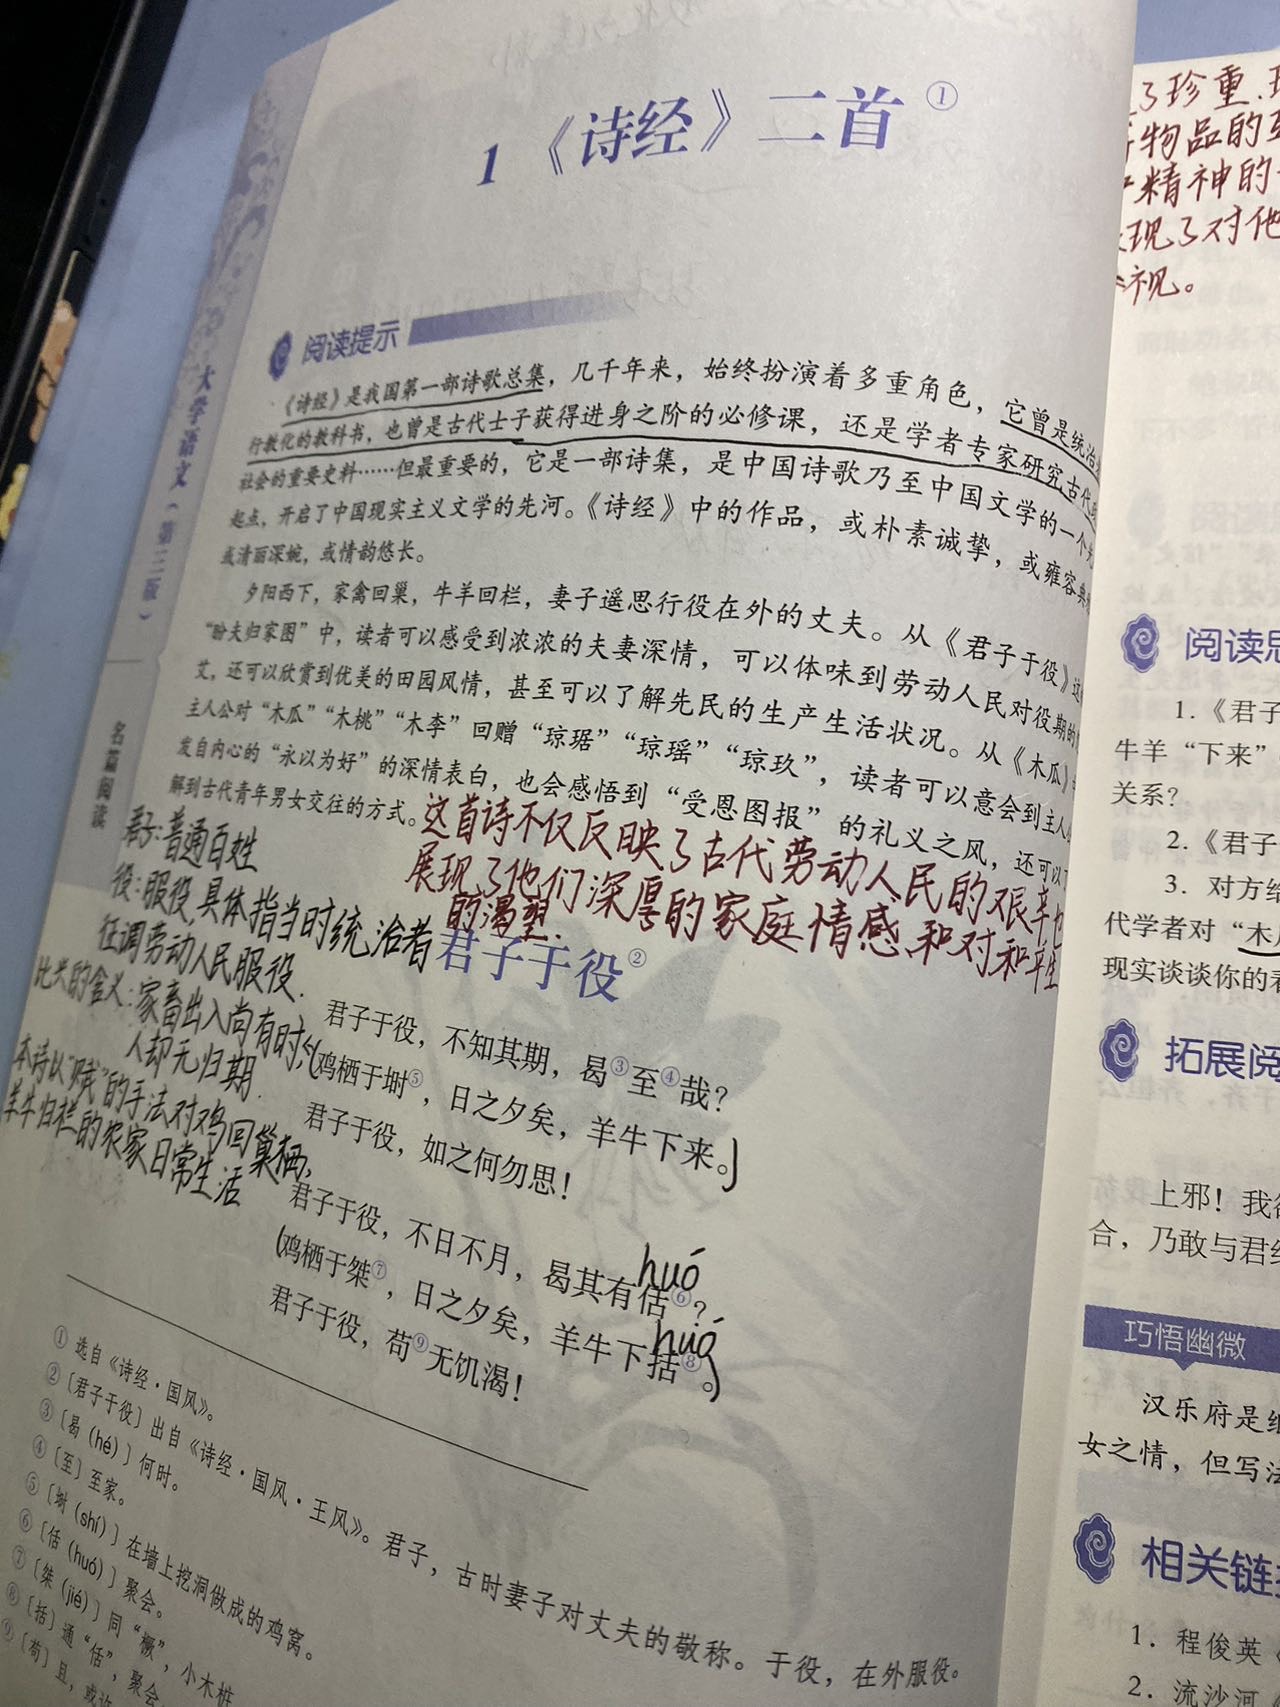 1 《诗经》二首①
大学语文（第三版）
名篇阅读
阅读提示
《诗经》是我国第一部诗歌总集，几千年来，始终扮演着多重角色，它曾是统治
行教化的教科书，也曾是古代士子获得进身之阶的必修课，还是学者专家研究古代
社会的重要史料……但最重要的，它是一部诗集，是中国诗歌乃至中国文学的一个
起点，开启了中国现实主义文学的先河。《诗经》中的作品，或朴素诚挚，或雍容典
或清丽深婉，或情韵悠长。
夕阳西下，家禽回巢，牛羊回栏，妻子遥思行役在外的丈夫。从《君子于役》这
“盼夫归家图”中，读者可以感受到浓浓的夫妻深情，可以体味到劳动人民对役期的
艾，还可以欣赏到优美的田园风情，甚至可以了解先民的生产生活状况。从《木瓜》
主人公对“木瓜”“木桃”“木李”回赠“琼琚”“琼瑶”“琼玖”，读者可以意会到主人
发自内心的“永以为好”的深情表白，也会感悟到“受恩图报”的礼义之风，还可以
解到古代青年男女交往的方式。
这首诗不仅反映了古代劳动人民的艰辛也
展现了他们深厚的家庭情感和对和平生
的渴望.
君子:普通百姓
役:服役,具体指当时统治者
征调劳动人民服役.
比兴的含义:家畜出入尚有时,
人却无归期.
本诗以“赋”的手法对鸡回巢栖,
羊牛归栏的农家日常生活
君子于役②
君子于役，不知其期，曷③至④哉？
(鸡栖于埘⑤，日之夕矣，羊牛下来。)
君子于役，如之何勿思！
君子于役，不日不月，曷其有佸⑥？
huó
(鸡栖于桀⑦，日之夕矣，羊牛下括⑧。)
huó
君子于役，苟⑨无饥渴！
① 选自《诗经·国风》。
② 〔君子于役〕出自《诗经·国风·王风》。君子，古时妻子对丈夫的敬称。于役，在外服役。
③ 〔曷（hé）〕何时。
④ 〔至〕至家。
⑤ 〔埘（shí）〕在墙上挖洞做成的鸡窝。
⑥ 〔佸（huó）〕聚会。
⑦ 〔桀（jié）〕同“橛”，小木桩
⑧ 〔括〕通“佸”，聚会
⑨ 〔苟〕且，或许
了珍重.
物品的
精神的
现了对他
视。
阅读思
1.《君子
牛羊“下来”
关系？
2.《君子
3. 对方给
代学者对“木
现实谈谈你的看
拓展阅
上邪！我欲
合，乃敢与君绝
巧悟幽微
汉乐府是继
女之情，但写法
相关链接
1. 程俊英
2. 流沙河